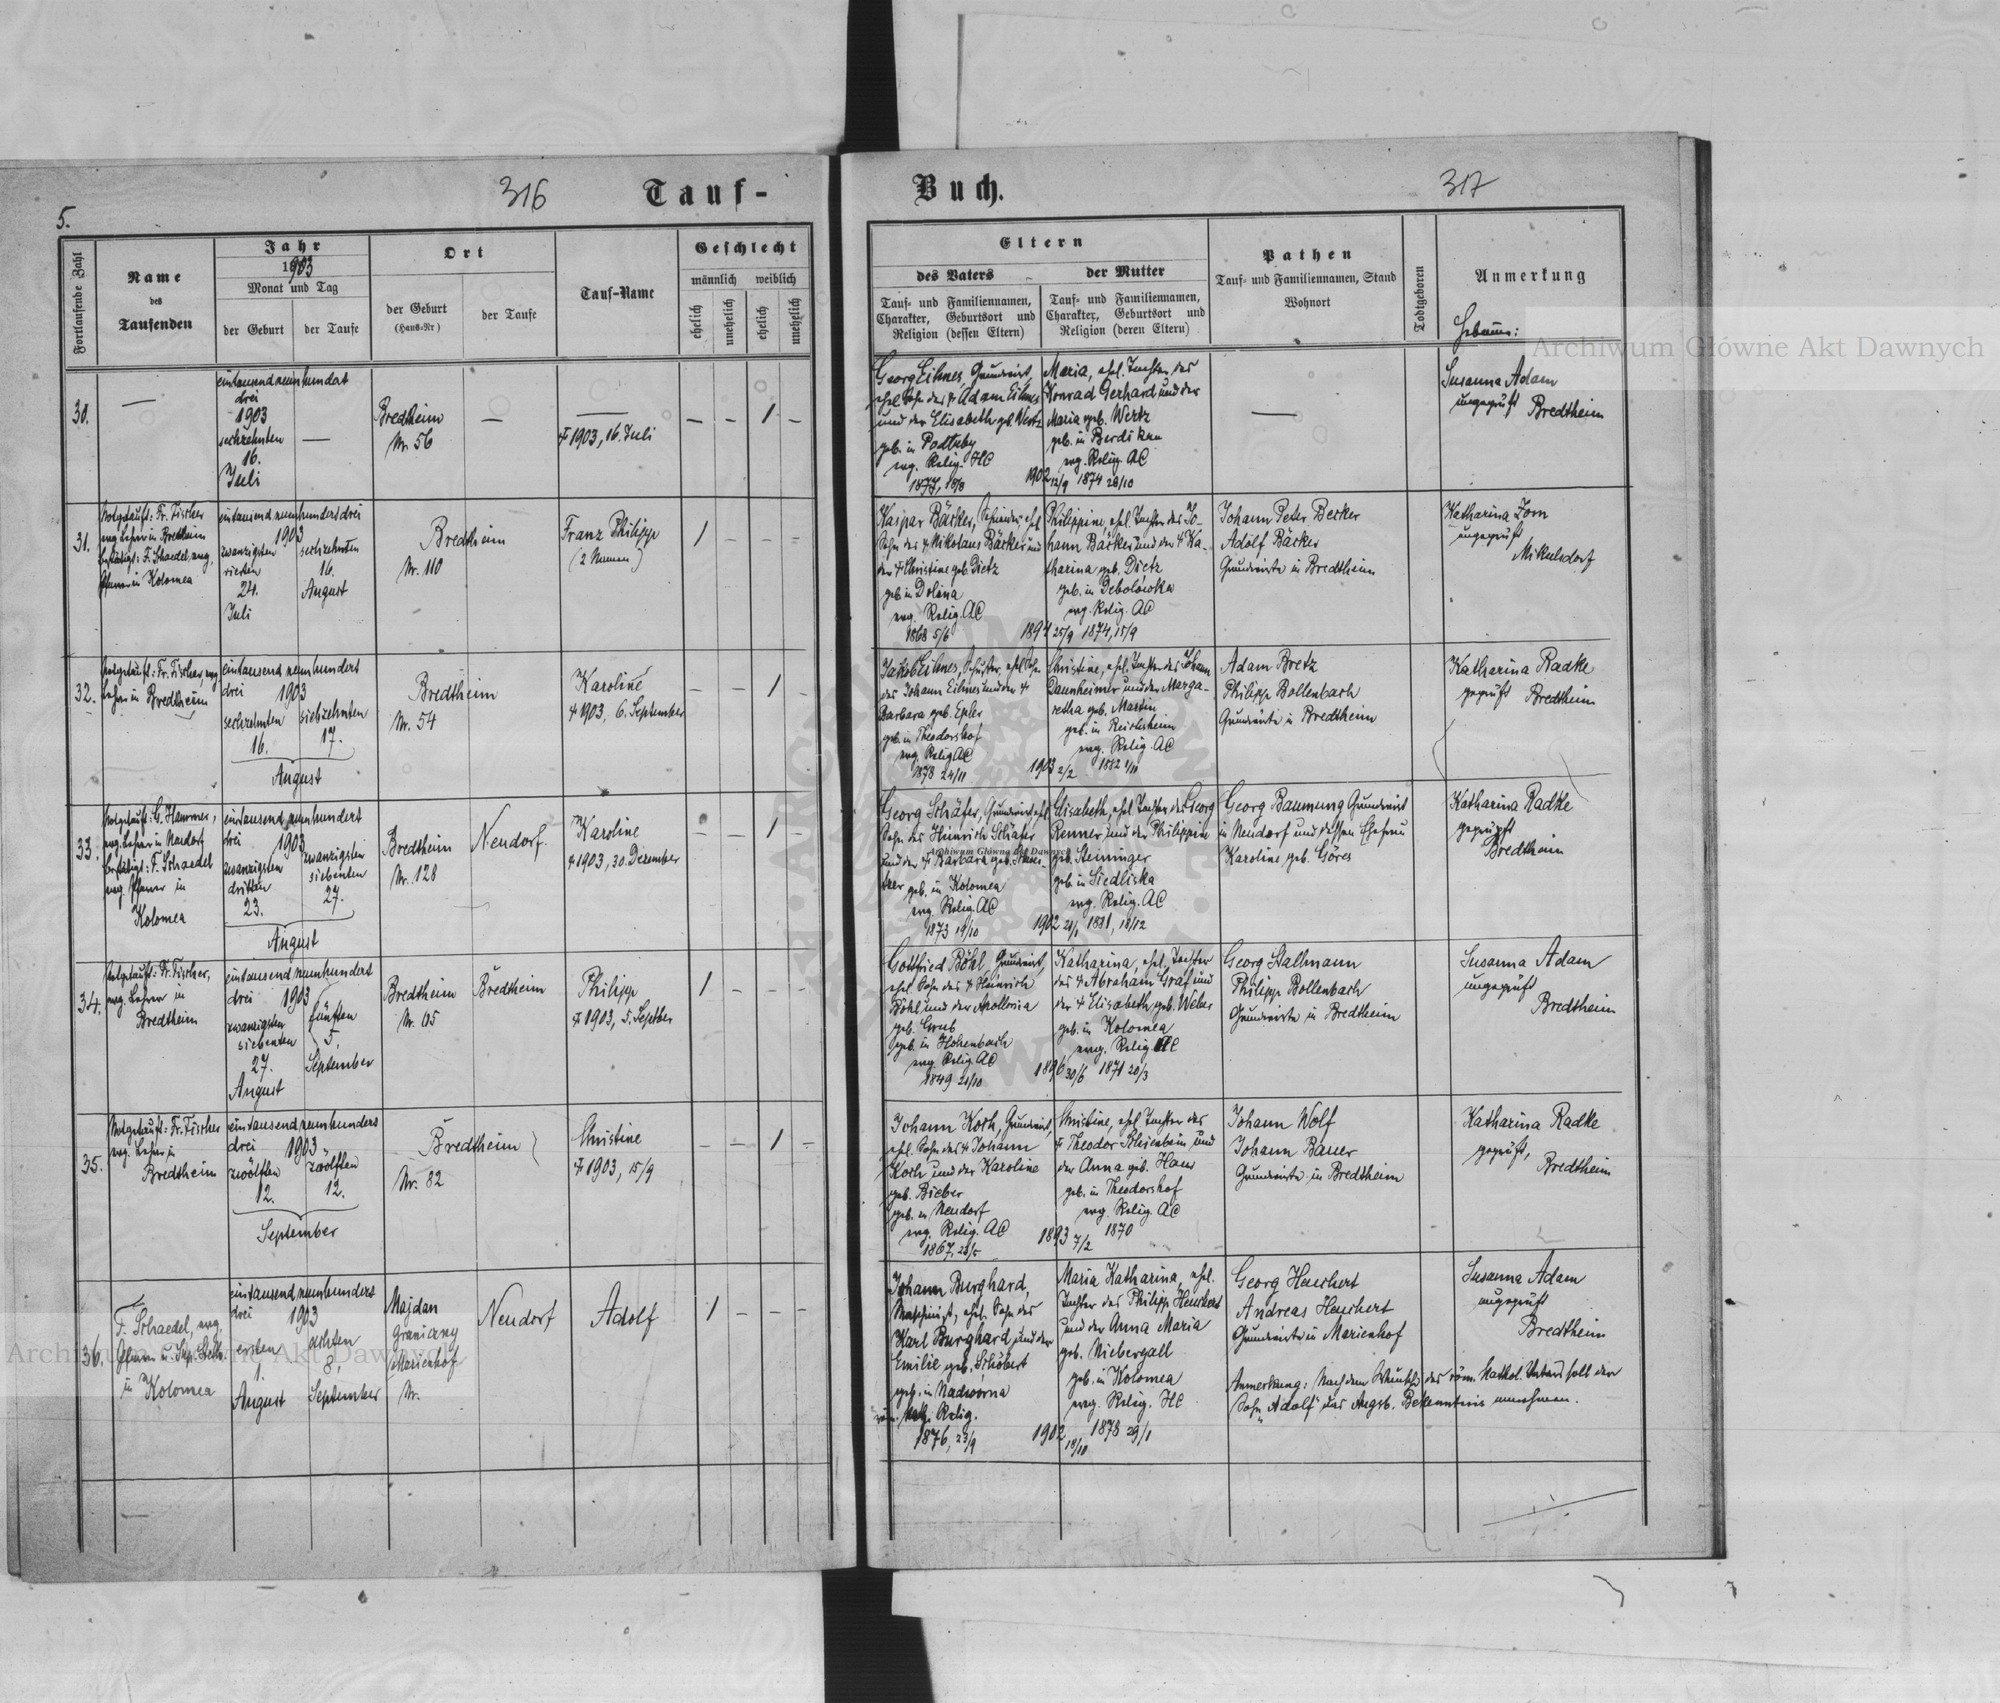 316
Tauf-
5.
Fortlaufende Zahl
Name
des
Taufenden
Jahr
1903
Monat und Tag
der Geburt
der Taufe
Ort
der Geburt
(Haus-Nr)
der Taufe
Tauf-Name
Geschlecht
männlich
weiblich
ehelich
unehelich
ehelich
unehelich
30.
—
eintausendneunhundert
drei
1903
sechzehnten
16.
Juli
—
Bredtheim
Nr. 56
—
—
† 1903, 16. Juli
– – 1 –
31.
Notgetauft: Fr. Fischer
evg. Lehrer in Bredtheim
bestätigt: F. Schaedel, evg.
Pfarrer in Kolomea
eintausendneunhundertdrei
1903
zwanzigsten
vierten
24.
Juli
sechzehnten
16.
August
Bredtheim
Nr. 110
Franz Philipp
(2 Namen)
1 – – –
32.
Notgetauft: Fr. Fischer, evg
Lehrer in Bredtheim
eintausend neunhundert
drei 1903
sechzehnten
16.
siebzehnten
17.
August
Bredtheim
Nr. 54
Karoline
† 1903, 6. September
– – 1 –
33.
Notgetauft: G. Hammer,
evg. Lehrer in Neudorf
bestätigt: F. Schaedel
evg. Pfarrer in
Kolomea
eintausend neunhundert
drei 1903
zwanzigsten
dritten
23.
zwanzigsten
siebenten
27.
August
Bredtheim
Nr. 128
Neudorf.
Karoline
† 1903, 30. Dezember
– – 1 –
34.
Notgetauft: Fr. Fischer,
evg. Lehrer in
Bredtheim
eintausend neunhundert
drei 1903
zwanzigsten
siebenten
27.
August
fünften
5.
September
Bredtheim
Nr. 65
Bredtheim
Philipp
† 1903, 5. Septber
1 – – –
35.
Notgetauft: Fr. Fischer
evg. Lehrer in
Bredtheim
eintausend neunhundert
drei 1903
zwölften
12.
zwölften
12.
September
Bredtheim
Nr. 82
Christine
† 1903, 15/9
– – 1 –
36.
F. Schaedel, evg.
Pfarrer u.
in Kolomea
eintausend neunhundert
drei 1903
ersten
1.
August
achten
8.
September
Majdan
graniczny
Marienhof
Nr.
Neudorf
Adolf
1 – – –
Buch.
317
Eltern
des Vaters
der Mutter
Tauf- und Familiennamen,
Charakter, Geburtsort und
Religion (dessen Eltern)
Tauf- und Familiennamen,
Charakter, Geburtsort und
Religion (deren Eltern)
Pathen
Tauf- und Familiennamen, Stand
Wohnort
Todtgeboren
Anmerkung
Hebamme:
Georg Eihnes, Grundwirt,
ehel. Sohn des † Adam Eihnes
und der Elisabeth geb. Wertz
geb. in
evg. Relig. HC
1877, 18/8
1902 12/9
Maria, ehel. Tochter des
Konrad Gerhard und der
Maria geb. Wertz
geb. in
evg. Relig. AC
1874 28/10
—
Susanna Adam
ungeprüft Bredtheim
Kaspar Bäcker, ehel
Sohn des † Nikolaus Bäcker und
der † Christine geb. Dietz
geb. in Dolina
evg. Relig. AC
1868 5/6
1894 25/9
Philippine, ehel. Tochter des Jo-
hann Bäcker und der † Ka-
tharina, geb. Dietz
geb. in Debolówka
evg. Relig. AC
1874, 15/9
Johann Peter Becker
Adolf Bäcker
Grundwirte in Bredtheim
Katharina Zorn
ungeprüft
Mikulsdorf
Jakob Eihnes, Schuster, ehel. Sohn
des Johann Eihnes und der †
Barbara geb. Epler
geb. in Theodorshof
evg. Relig AC
1878 24/11
1903 2/2
Christine, ehel. Tochter des Johann
Dannheimer und der Marga-
retha geb. Martin
geb. in Reichsheim
evg. Relig. AC
1882 1/10
Adam Bretz
Philipp Bollenbach
Grundwirte in Bredtheim
Katharina Radke
geprüft Bredtheim
Georg Schäfer, Grundwirt, ehel.
Sohn des Heinrich Schäfer
und der † Barbara geb.
geb. in Kolomea
evg. Relig. AC
1873 19/10
1902 21/1
Elisabeth, ehel. Tochter des Georg
Renner und der Philippine
geb. Steininger
geb. in Siedliska
evg. Relig. AC
1881, 18/12
Georg Baumung Grundwirt
in Neudorf und dessen Ehefrau
Karoline geb. Göres
Katharina Radke
geprüft
Bredtheim
Gottfried Böhl, Grundwirt,
ehel. Sohn des † Heinrich
Böhl und der Apollonia
geb. Grub
geb. in Hohenbach
evg. Relig. AC
1849 21/10
1896 30/6
Katharina, ehel. Tochter
des † Abraham Graf und
der † Elisabeth geb. Weber
geb. in Kolomea
evg. Relig. HC
1871 20/3
Georg Stallmann
Philipp Bollenbach
Grundwirte in Bredtheim
Susanna Adam
ungeprüft
Bredtheim
Johann Koch, Grundwirt,
ehel. Sohn des † Johann
Koch und der Karoline
geb. Bieber
geb. in Neudorf
evg. Relig. AC
1867, 23/5
1893 7/2
Christine, ehel. Tochter des
† Theodor Schienbein und
der Anna geb. Haus
geb. in Theodorshof
evg. Relig. AC
1870
Johann Wolf
Johann Bauer
Grundwirte in Bredtheim
Katharina Radke
geprüft,
Bredtheim
Johann Burghard,
Maschinist, ehel. Sohn des
Karl Burghard und der
Emilie geb. Schöbert
geb. in Nadwórna
röm. kath. Relig.
1876, 23/9
1902 18/10
Maria Katharina, ehel.
Tochter des Philipp Heuchert
und der Anna Maria
geb. Niebergall
geb. in Kolomea
evg. Relig. HC
1878 29/1
Georg Heuchert
Andreas Heuchert
Grundwirte in Marienhof
Anmerkung: Nach dem Wunsche des röm. kathol. Vaters soll der
Sohn „Adolf" das Augsb. Bekenntnis annehmen.
Susanna Adam
ungeprüft
Bredtheim
Archiwum Główne Akt Dawnych
Archiwum Główne Akt Dawnych
Archiwum Główne Akt Dawnych